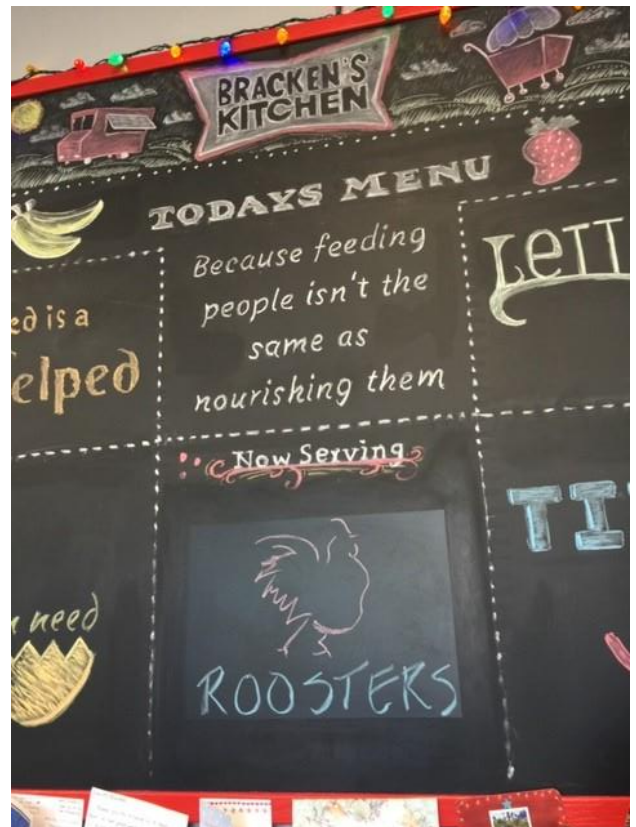 BRACKEN'S
KITCHEN
TODAYS MENU
Because feeding
people isn't the
same as
nourishing them
is a
elped
Now Serving
need
ROOSTERS